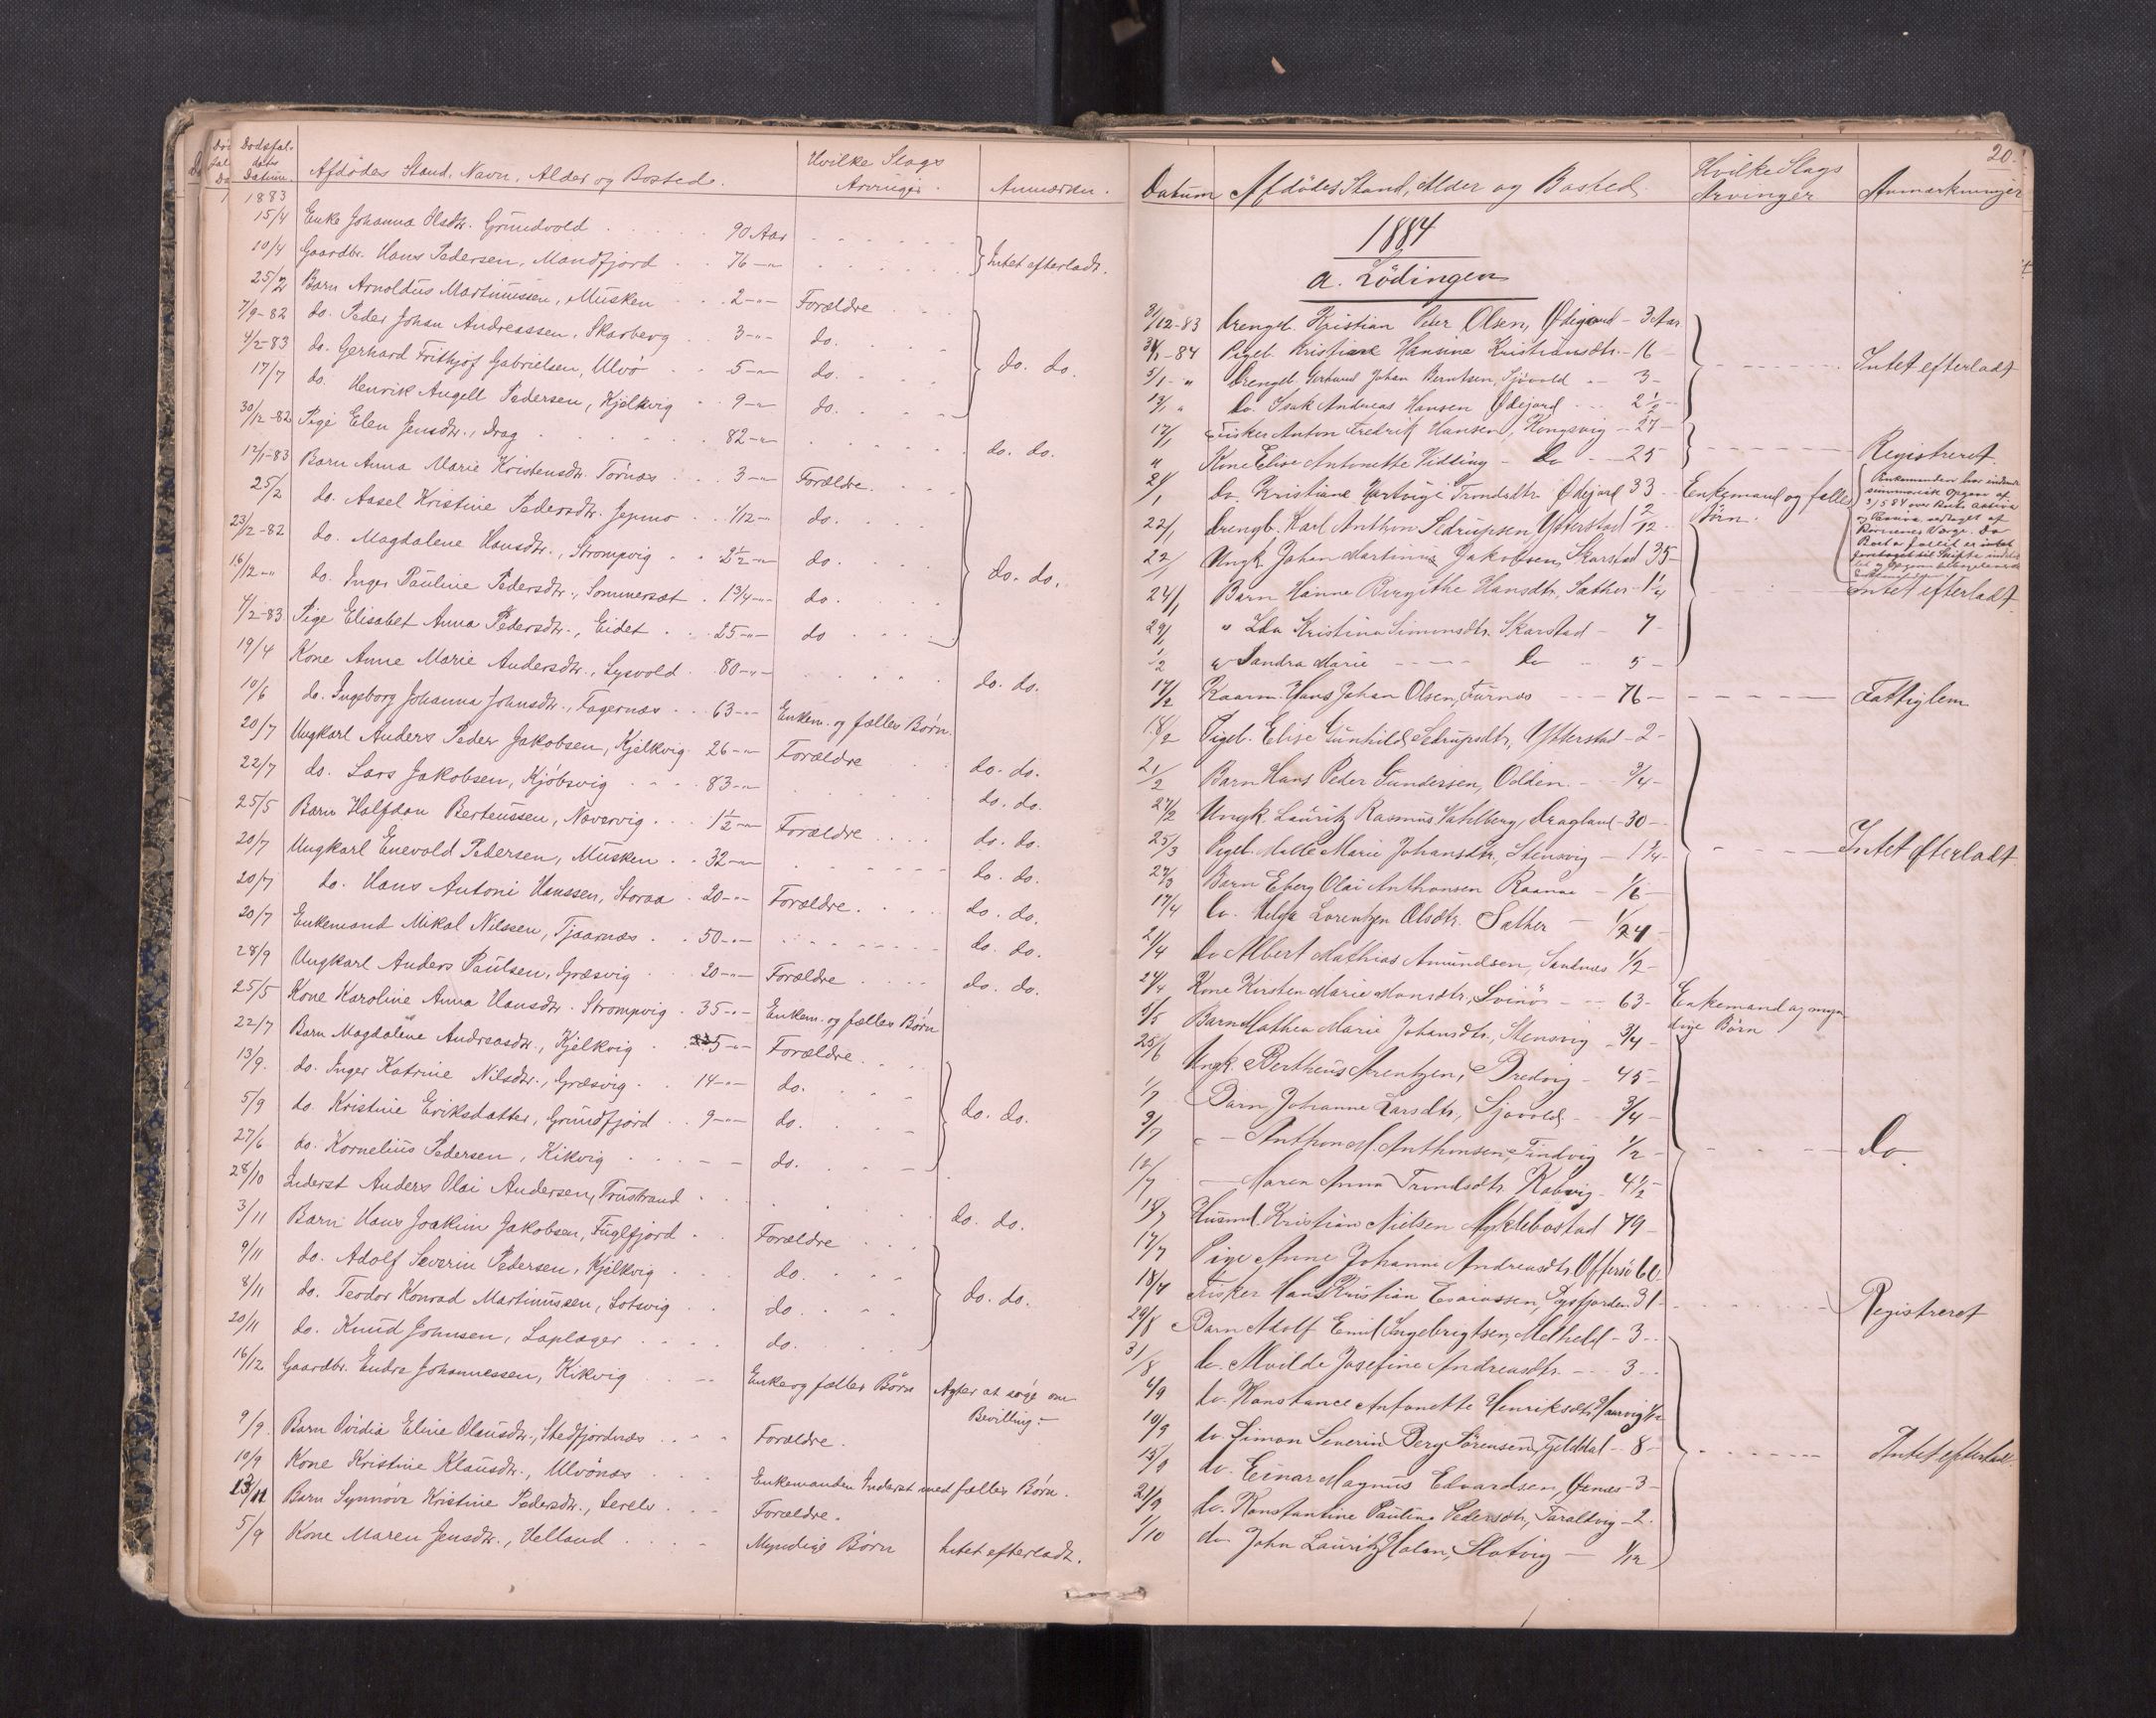 Dødsfal-
dets
Datum.
Afdødes Stand, Navn, Alder og Bosted.
Hvilke Slags
Arvinger.
Anmærkn.
1883
15/4 Enke Johanna Olsdtr. Grundvold 90 Aar
10/4 Gaardbr. Hans Pedersen, Mandfjord 76 -"- Intet efterladt.
25/2 Barn Arnoldus Martinussen, Musken 2 -"- Forældre
7/9-82 do. Peder Johan Andreassen, Skarberg 3 -"- do.
4/2-83 do. Gerhard Frithjof Gabrielsen, Ulvö 5 -"- do. do. do.
17/7 do. Henrik Angell Pedersen, Kjelkvig 9 -"- do.
30/12-82 Pige Elen Jensdtr., Drag 82 -"- do. do.
12/1-83 Barn Anna Marie Kristensdtr. Törnæs 3 -"- Forældre
25/2 do. Aasel Kristine Pedersdtr. Jepmo 1/12 -"- do.
23/12-82 do. Magdalene Hansdtr., Strompvig 2 1/2 -"- do.
16/12 -"- do. Inger Pauline Pedersdtr., Sommerset 1 3/4 -"- do. do. do.
4/2-83 Pige Elisabet Anna Pedersdtr., Eidet 25 -"- do
19/4 Kone Anne Marie Andersdtr., Lysvold 80 -"- do. do.
10/6 do. Ingeborg Johanna Johnsdtr., Fagernæs 63 -"- Enkem. og fælles Børn.
20/7 Ungkarl Anders Peder Jakobsen, Kjelkvig 26 -"- Forældre do. do.
22/7 do. Lars Jakobsen, Kjöbsvig 83 -"- do. do.
25/5 Barn Halfdan Berteussen, Navervig 1 1/2 -"- Forældre do. do.
20/7 Ungkarl Enevold Pedersen, Musken 32 -"- do. do.
20/7 do. Hans Antoni Hanssen, Storaa 20 -"- Forældre do. do.
20/7 Enkemand Mikal Nilssen, Tjaarnæs 50 -"- do. do.
28/9 Ungkarl Anders Paulsen, Græsvig 20 -"- Forældre do. do.
25/5 Kone Karoline Anna Hansdtr. Strompvig 35 -"- Enkem. og fælles Børn
22/7 Barn Magdalene Andreasdtr., Kjelkvig 5 -"- Forældre
13/9. do. Inger Katrine Nilsdtr., Græsvig 14 -"- do.
5/9 do. Kristine Eriksdatter, Grundfjord 9 -"- do. do. do.
27/6 do. Kornelius Pedersen, Kikvig - - do.
28/10 Inderst Anders Olai Andersen, Trustrand do. do.
3/11 Barn Hans Joakim Jakobsen, Fuglfjord Forældre
9/11 do. Adolf Severin Pedersen, Kjelkvig do.
8/11 do. Teodor Konrad Martinussen, Lotsvig do. do. do.
20/11 do. Knud Johnsen, Laplæger do.
16/12 Gaardbr. Endre Johannessen, Kikvig Enke og fælles Børn Agter at søge om
Bevilling.-
9/9. Barn Ovidia Eline Olausdtr., Stedfjordnæs Forældre.
10/9 Kone Kristine Klausdtr., Ulvönæs Enkemanden Inderst med fælles Børn.
13/11 Barn Synnöve Kristine Pedersdtr., Forældre.
5/9 Kone Maren Jensdtr., Helland Myndige Børn Intet efterladt.
20.
Datum Afdødes Stand, Alder og Bosted.
Hvilke Slags
Arvinger
Anmærkninger
1884
a. Lödingen
31/12-83 Drengeb. Kristian Peter Olsen, Ödegaard - 3 Aar
Pigeb. Kristiane Hansine Kristiansdtr. - 16 -
5/1 - " Drengeb. Gerhard Johan Berntsen, Sjövold - 3 - Intet efterladt
13/1 " Do. Isak Andreas Hansen Ödejord 2 1/2 -
17/1 Fisker Anton Fredrik Hansen, Kongsvig - 27 -
" Kone Elise Antonette Hilding - Do - 25 Registreret.
21/1 Do. Kristiane Hartvige Trondsdtr. Ödejord 33 Enkemand og fælles
Børn.
Enkemanden har indendt
summarisk Opgave af
3/5 84 over Boets Activa
og Passiva vedtaget af
Børnenes Værge. Da
22/1 Drengb. Karl Anthon Sedrupsen Ytterstad 2/12
22/1 Ungk. Johan Martinus Jakobsen, Skarstad 35 -
24/1 Barn Hanne Birgithe Hansdtr. Sæther - 1 1/4 Intet efterladt.
29/1 " Lda Kristina Simonsdtr. Skarstad - 7 -
1/2 " Sandra Marie - - - Do - 5 -
17/2 Kaarm. Hans Johan Olsen, Furnæs - 76 - Fattiglem
18/2 Pigeb. Elise Gunhild Sedrupsdtr., Ytterstad - 2 -
21/2 Barn Hans Peder Gundersen, Odden - 3/4 -
27/2 Ungk. Lauritz Rasmus Vahlberg, Dragland - 30 -
25/3 Pigeb. Malle Marie Johansdtr., Stensvig - 1 3/4 - Intet efterladt
27/3 Barn Eberg Olai Anthonsen Raanæs - 1/6 -
17/4 Do. Helga Lorentzen Olsdtr. Sæther - 1/24 -
21/4 Do Albert Mathias Amundsen, Sandnæs 1/2 -
24/4 Kone Kirsten Marie Monsdtr., Svinös - 63 - Enkemand og myn-
dige Börn
1/5 Barn Mathea Marie Johansdtr., Stensvig - 3/4 -
25/6 Ungk. Bertheus Arentzen, Bredvig - 45 -
1/7 Barn Johanne Larsdtr., Sjövold - 3/4 -
3/7 " - Anthon M. Anthonsen, Tindvig 1/2 - Do.
12/7 - Maren Anna Trondsdtr. Kobvig - 4 1/2 -
15/7 Husmd. Kristian Nielsen Myklebostad 79 -
17/7 Pige Anne Johanne Andreasdtr. Offersö 60.
18/7 Fisker Hans Kristian Esaiassen, Tysfjorden 31 - Registreret
29/8 Barn Adolf Emil Ingebrigtsen, - 3 -
31/8 Do. Mvilde Josefine Andreasdtr. - 3 -
4/9 Do. Konstance Antonette Henriksdtr.
10/9 Do. Simon Severin Berg Sörensen, Fjelddal - 8 -
15/9 Do. Einar Magnus Edvardsen, - 3 - Intet efterladt.
21/9 Do. Konstantine Pauline Pedersdtr., Taraldvig - 2.
1/10 do. John Lauritz Holan, Slotvig - 1/12